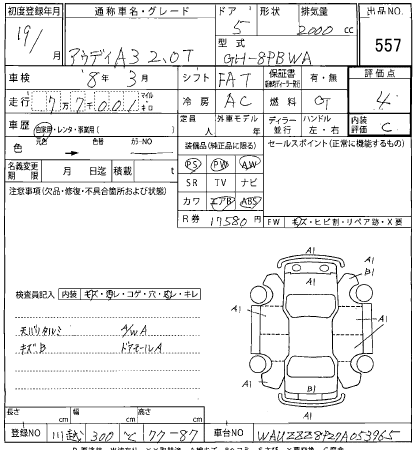 初度登録年月 通称車名・グレード ドア 形状 排気量 出品NO
19/ 月 アウディA3 2.0T 5 2000 cc 557
型式
GH-8PBWA
車検 '8年 3月 シフト FAT 保証書 有・無 評価点
走行 7万7千001 マイル キロ 冷房 AC 燃料 4
車歴 自家用・レンタ・事業用( ) 定員 人 外車モデル ディラー 並行 ハンドル 左・右 内装評価 C
色 元色 色替 カラーNO
装備品(純正品に限る) セールスポイント(正常に機能するもの)
PS PW AW
名義変更期限 月 日迄 積載 t SR TV ナビ
注意事項(欠品・修復・不具合箇所および状態) カワ エアB ABS
R券 17580円 FW キズ・ヒビ割・リペア跡・X要
検査員記入 内装 キズ・汚レ・コゲ・穴・キレ
天バリタルミ A/W A
キズ、B ドアモールA
A1
A1
A1
B1
A1
A1
A1
A1
B1
A1
長さ cm 幅 cm 高さ cm
登録NO 川越 300 て 77-87 車台NO WAUZZZ8P27A053965